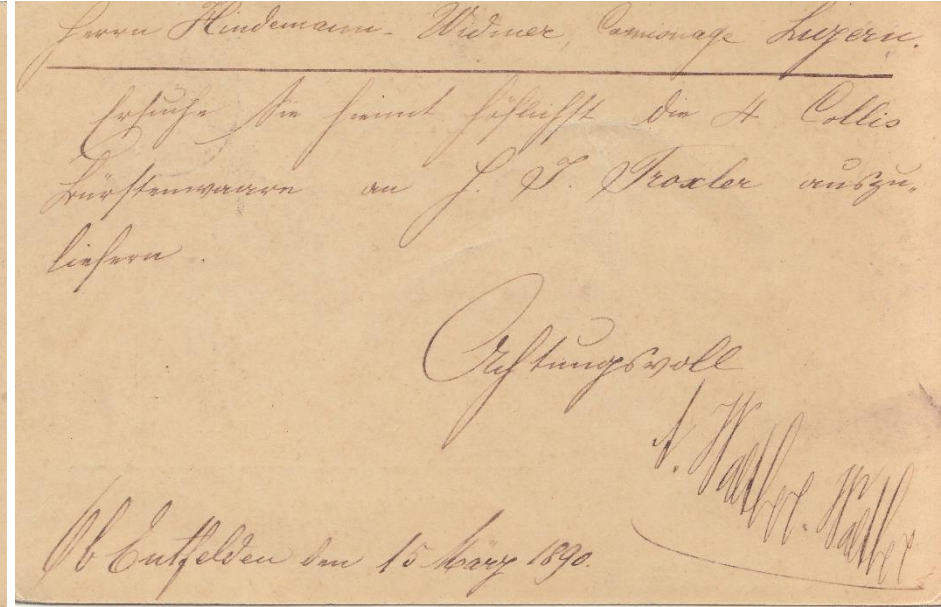 Herrn Hindemann-Widmer, Camionage Luzern.
Ersuche Sie hiemit höflichst die 4 Collis
Bürstenwaare an H. J. Troxler auszu-
liefern.
Achtungsvoll
Walther-Walther
Ob Entfelden den 15 März 1890.